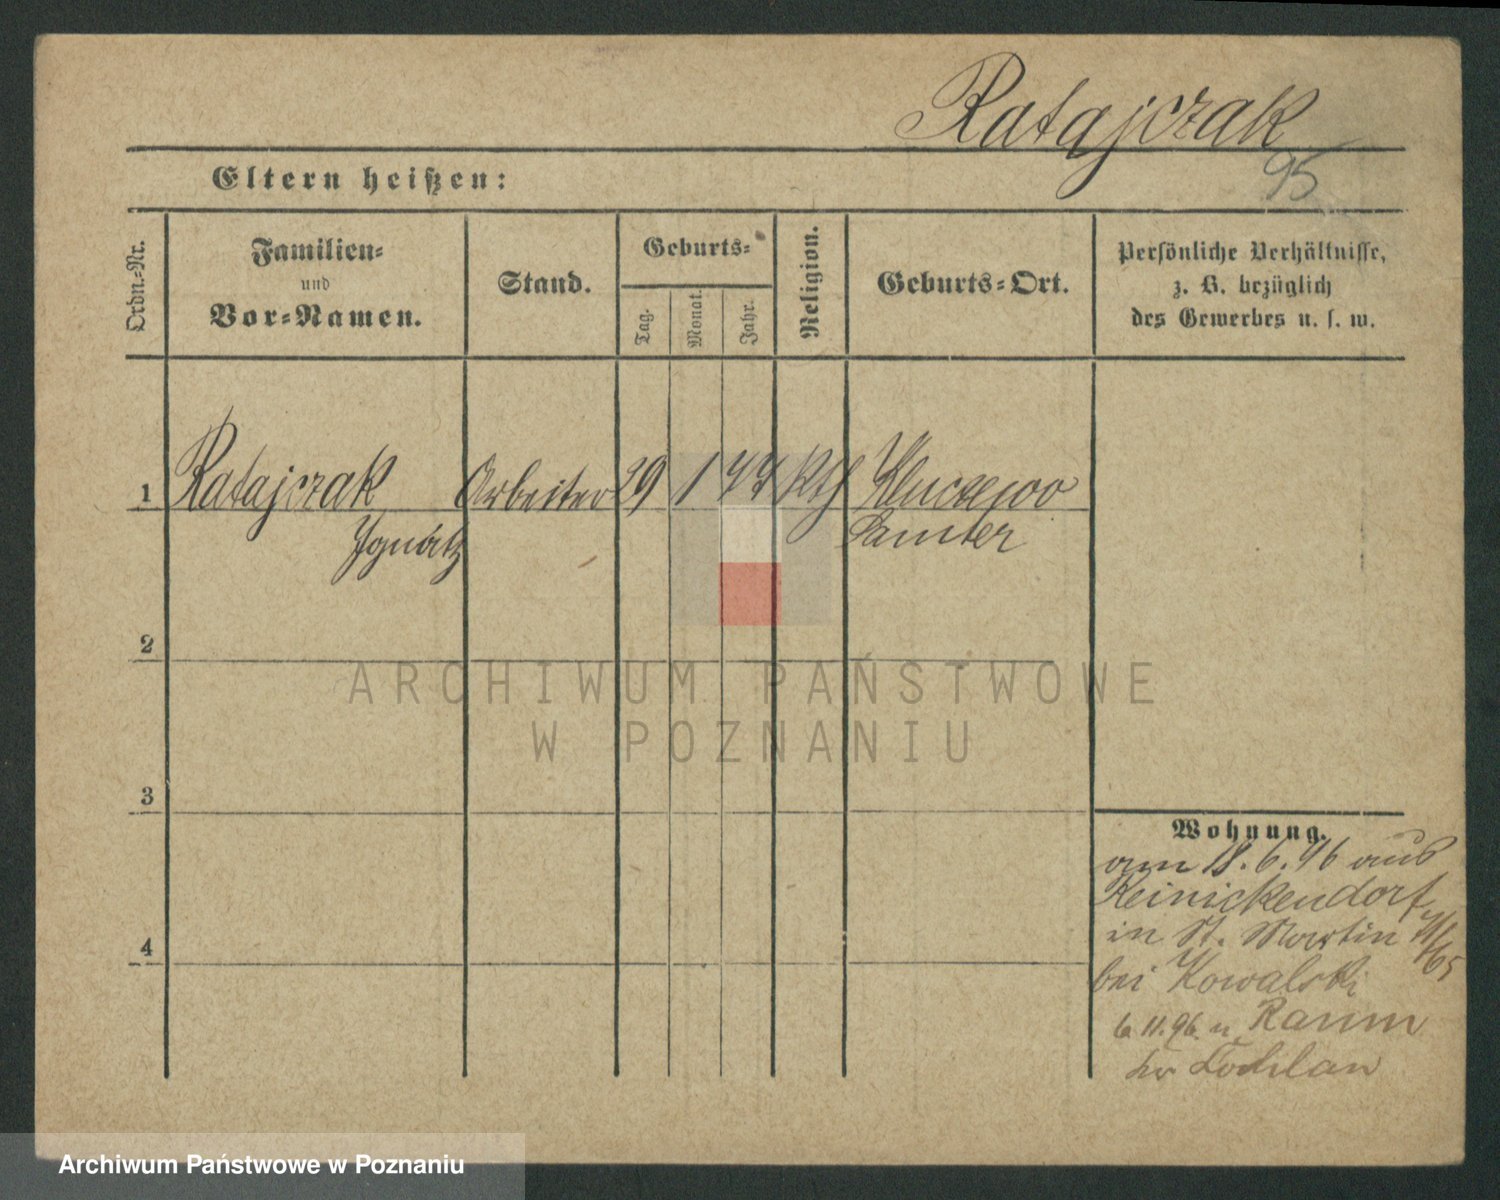 Ratajczak
95
Eltern heißen:
Ordn.-Nr.
Familien-
und
Vor-Namen.
Stand.
Geburts-
Tag.
Monat.
Jahr.
Religion.
Geburts-Ort.
Persönliche Verhältnisse,
z. B. bezüglich
des Gewerbes u. s. w.
1 Ratajczak Arbeiter 29 1 77 Kth Kluczewo
Ignatz Samter
2
3
4
Wohnung.
am 18.6.96 aus
Reinickendorf
in St. Martin
bei Kowalski
6.11.96. n.
ARCHIWUM PAŃSTWOWE
W POZNANIU
Archiwum Państwowe w Poznaniu